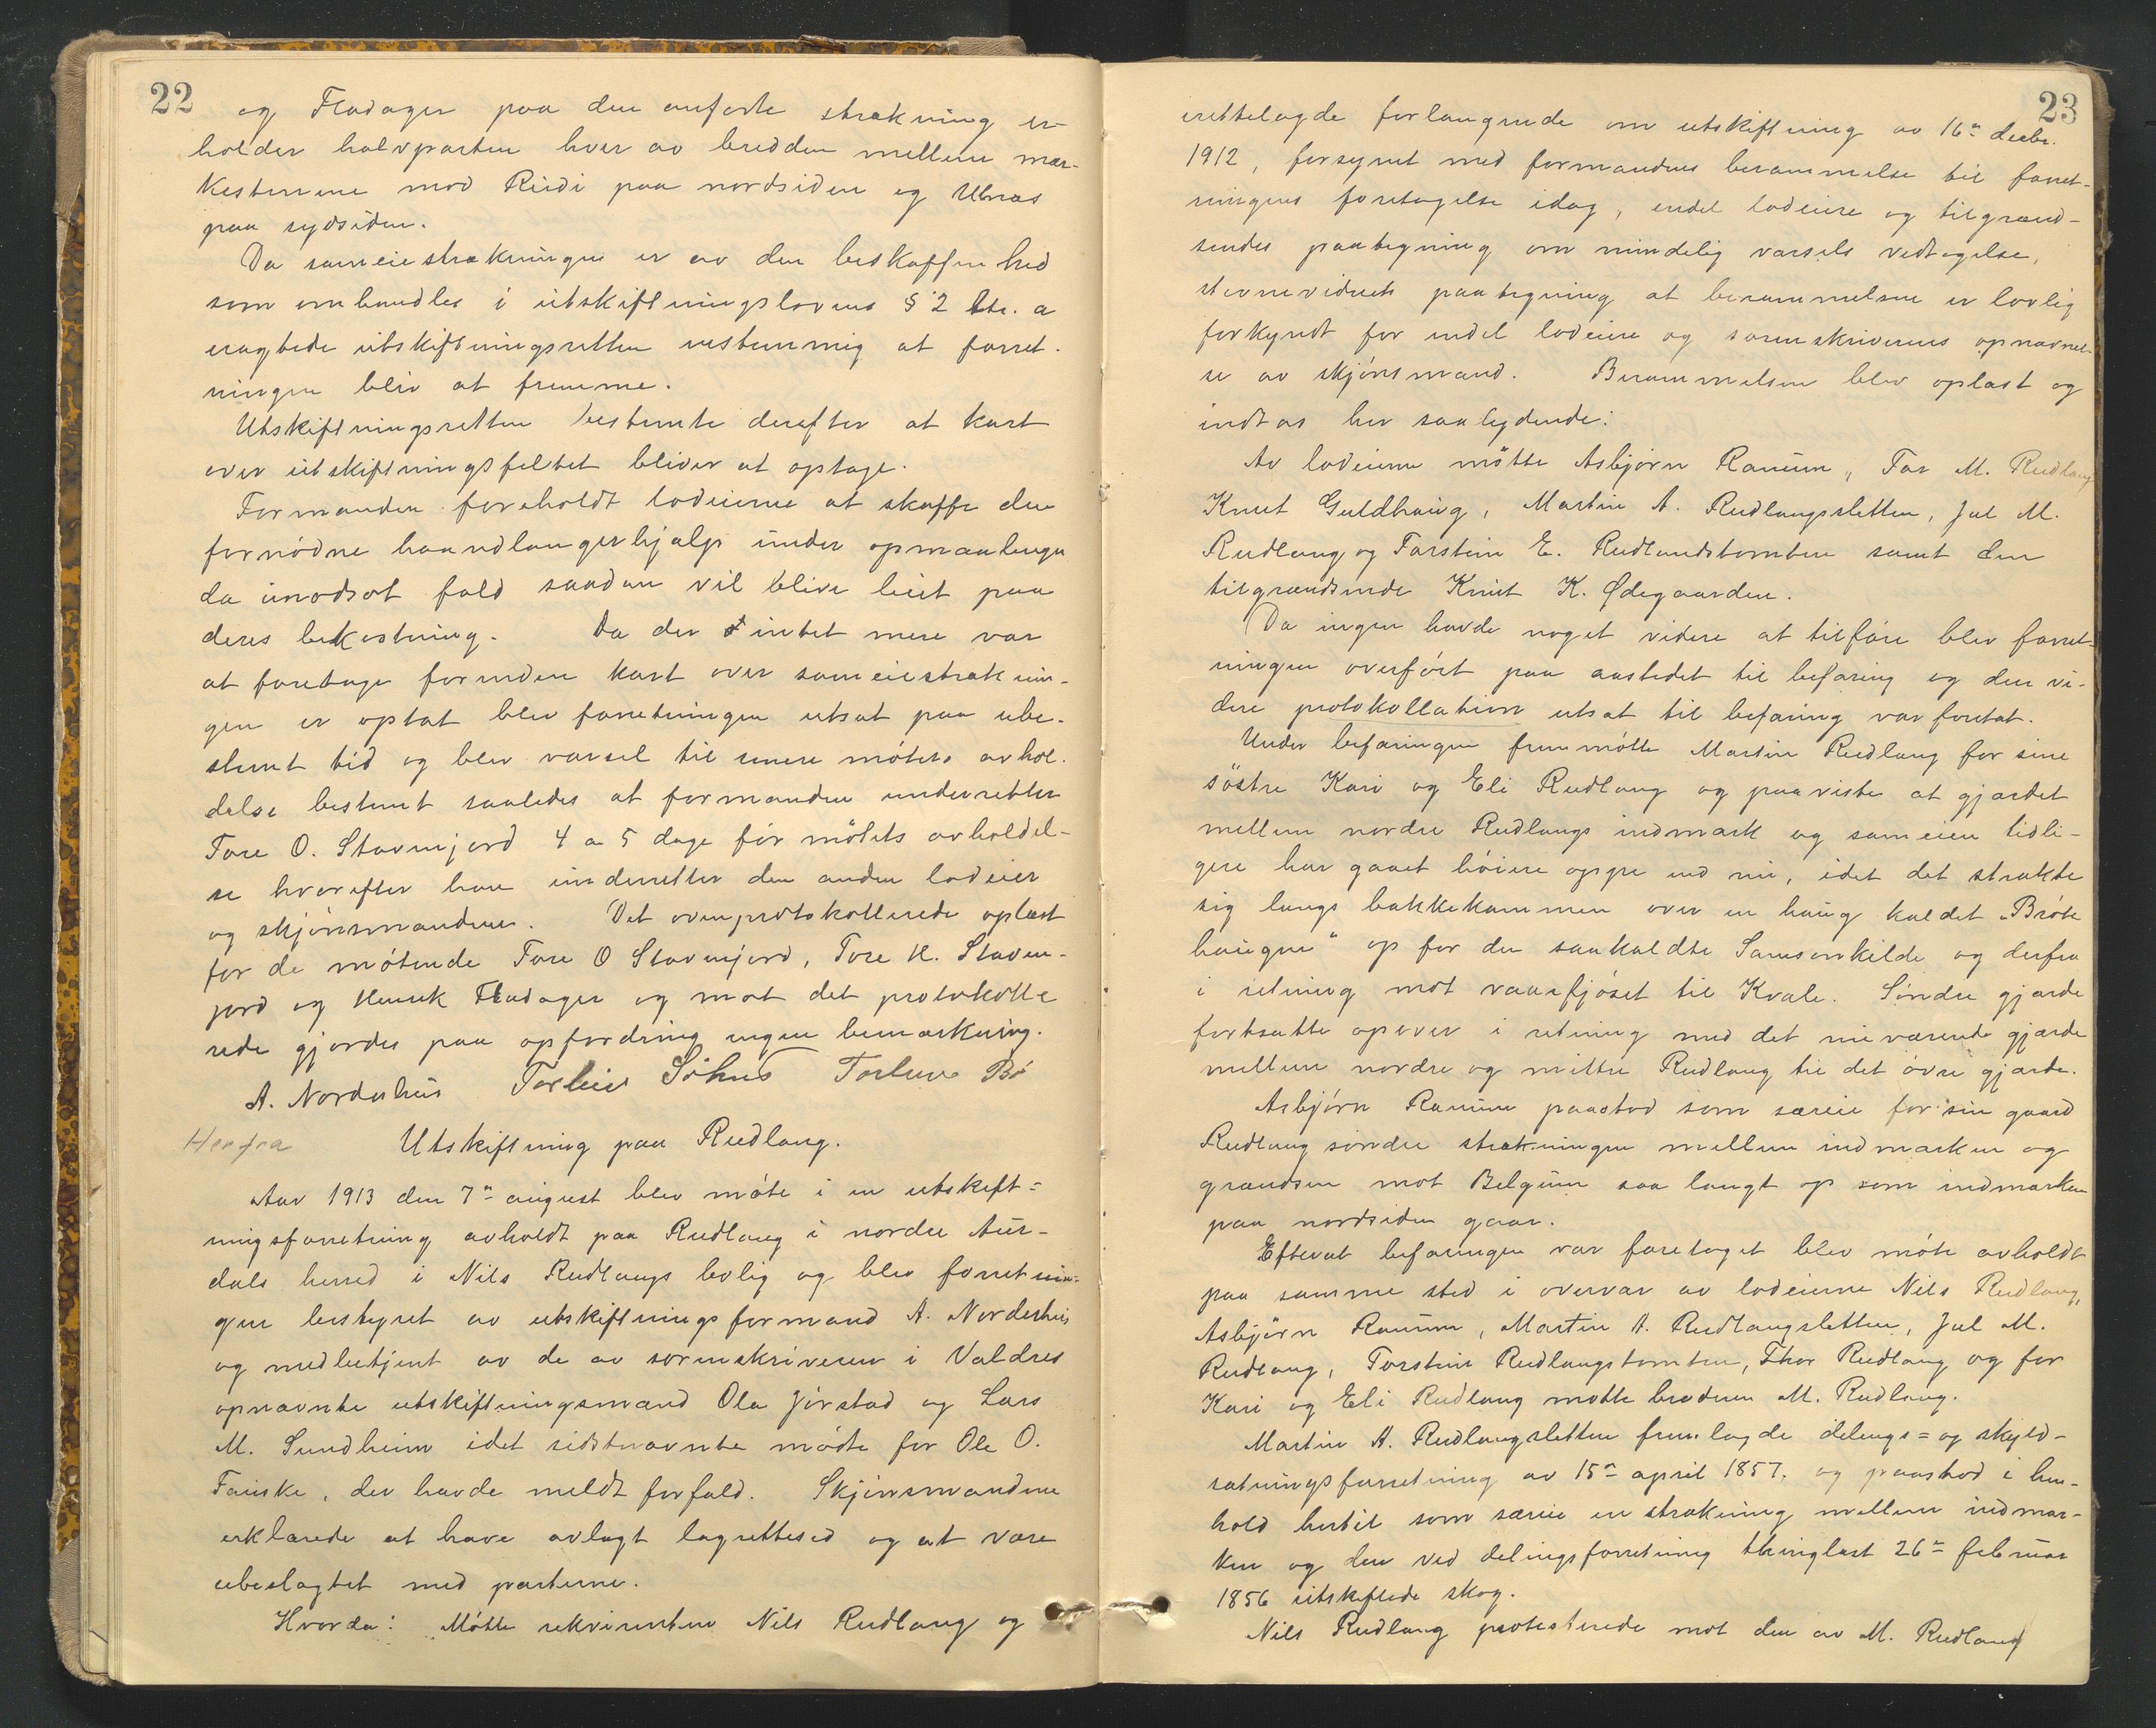 22
og Fladager paa den anførte strækning er-
holder halvparten hver av bredden mellem mær-
kestenene mod Ridi paa nordsiden og Ulnæs
paa sydsiden.
Da sameiestrækningen er av den beskaffenhed
som omhandles i utskiftningslovens § 2 litr. a
eragtede utskiftningsretten enstemmig at forret-
ningen blir at fremme.
Utskiftningsretten bestemte derefter at kart
over utskiftningsfeltet bliver at optage.
Formanden foreholdt lodeierne at skaffe den
fornødne haandlangerhjælp under opmaalingen
da i modsat fald saadan vil blive leiet paa
deres bekostning. Da der intet mere var
at foretage forinden kart over sameiestræknin-
gen er optat blev forretningen utsat paa ube-
stemt tid og blev varsel til senere møters avhol-
delse bestemt saaledes at formanden underretter
Tore O. Stavnjord 4 a 5 dage før møtets avholdel-
se hvorefter han underretter den anden lodeier
og skjønsmændene. Det ovenprotokollerede oplæst
for de møtende Tore O Stavnjord, Tore H. Staven-
jord og Henrik Fladager og mot det protokolle
rede gjordes paa opfordring ingen bemærkning.
A. Norderhus Torleiv Søhus Torleiv Bø
Herfra Utskiftning paa Rudlang.
Aar 1913 den 7n august blev møte i en utskift=
ningsforretning avholdt paa Rudlang i nordre Aur-
dals herred i Nils Rudlangs bolig og blev forretnin-
gen bestyret av utskiftningsformand A. Norderhus
og medbetjent av de av sorenskriveren i Valdres
opnævnte utskiftningsmænd Ola Jørstad og Lars
M. Sundheim idet sidstnævnte mødte for Ole O.
Fauske, der havde meldt forfald. Skjønsmændene
erklærede at have avlagt lagrettesed og at være
ubeslagtet med parterne.
Hvorda: Møtte rekvirenten Nils Rudlang og
23
irettelagde forlangende om utskiftning av 16n decbr.
1912, forsynet med formandens berammelse til forret-
ningens foretagelse idag, endel lodeiere og tilgrænd-
sendes paategning om mindelig varsels vedtagelse,
stevnevidnets paategning at berammelsen er lovlig
forkyndt for endel lodeiere og sorenskriverens opnævnel-
se av skjønsmænd. Berammelsen blev oplæst og
indtas her saalydende:
Av lodeierne møtte Asbjørn Ranum, Tor M. Rudlang
Knut Guldhaug, Martin A. Rudlangsletten, Jul M.
Rudlang og Torstein E. Rudlandstomten samt den
tilgrændsende Knut K. Ødegaarden.
Da ingen havde noget videre at tilføre blev forret-
ningen overført paa aastedet til befaring og den vi-
dere protokollation utsat til befaring var foretat.
Under befaringen fremmøtte Martin Rudlang for sine
søstre Kari og Eli Rudlang og paaviste at gjærdet
mellem nordre Rudlangs indmark og sameien tidli-
gere har gaaet høiere oppe end nu, idet det strakte
sig langs bakkekammen over en haug kaldet "Bråte
haugen" op for den saakaldte Samsonkilde og derfra
i retning mot vaarfjøset til Kvale. Søndre gjærde
fortsatte opover i retning med det nuværende gjærde
mellem nordre og mittre Rudlang til det øvre gjærde.
Asbjørn Ranum paastod som særeie for sin gaard
Rudlang søndre strækningen mellem indmarken og
grændsen mot Belgum saa langt op som indmarken
paa nordsiden gaar.
Efterat befaringen var foretaget blev møte avholdt
paa samme sted i overvær av lodeierne Nils Rudlang,
Asbjørn Ranum, Martin A. Rudlangsletten, Jul M.
Rudlang, Torstein Rudlangstomten, Thor Rudlang og for
Kari og Eli Rudlang møtte broderen M. Rudlang.
Martin A. Rudlangsletten fremlagde delings= og skyld-
sætningsforretning av 15n april 1857. og paastod i hen-
hold hertil som særeie en strækning mellem indmar-
ken og den ved delingsforretning thinglæst 26n februar
1856 utskiftede skog.
Nils Rudlang protesterede mot den av M. Rudlang